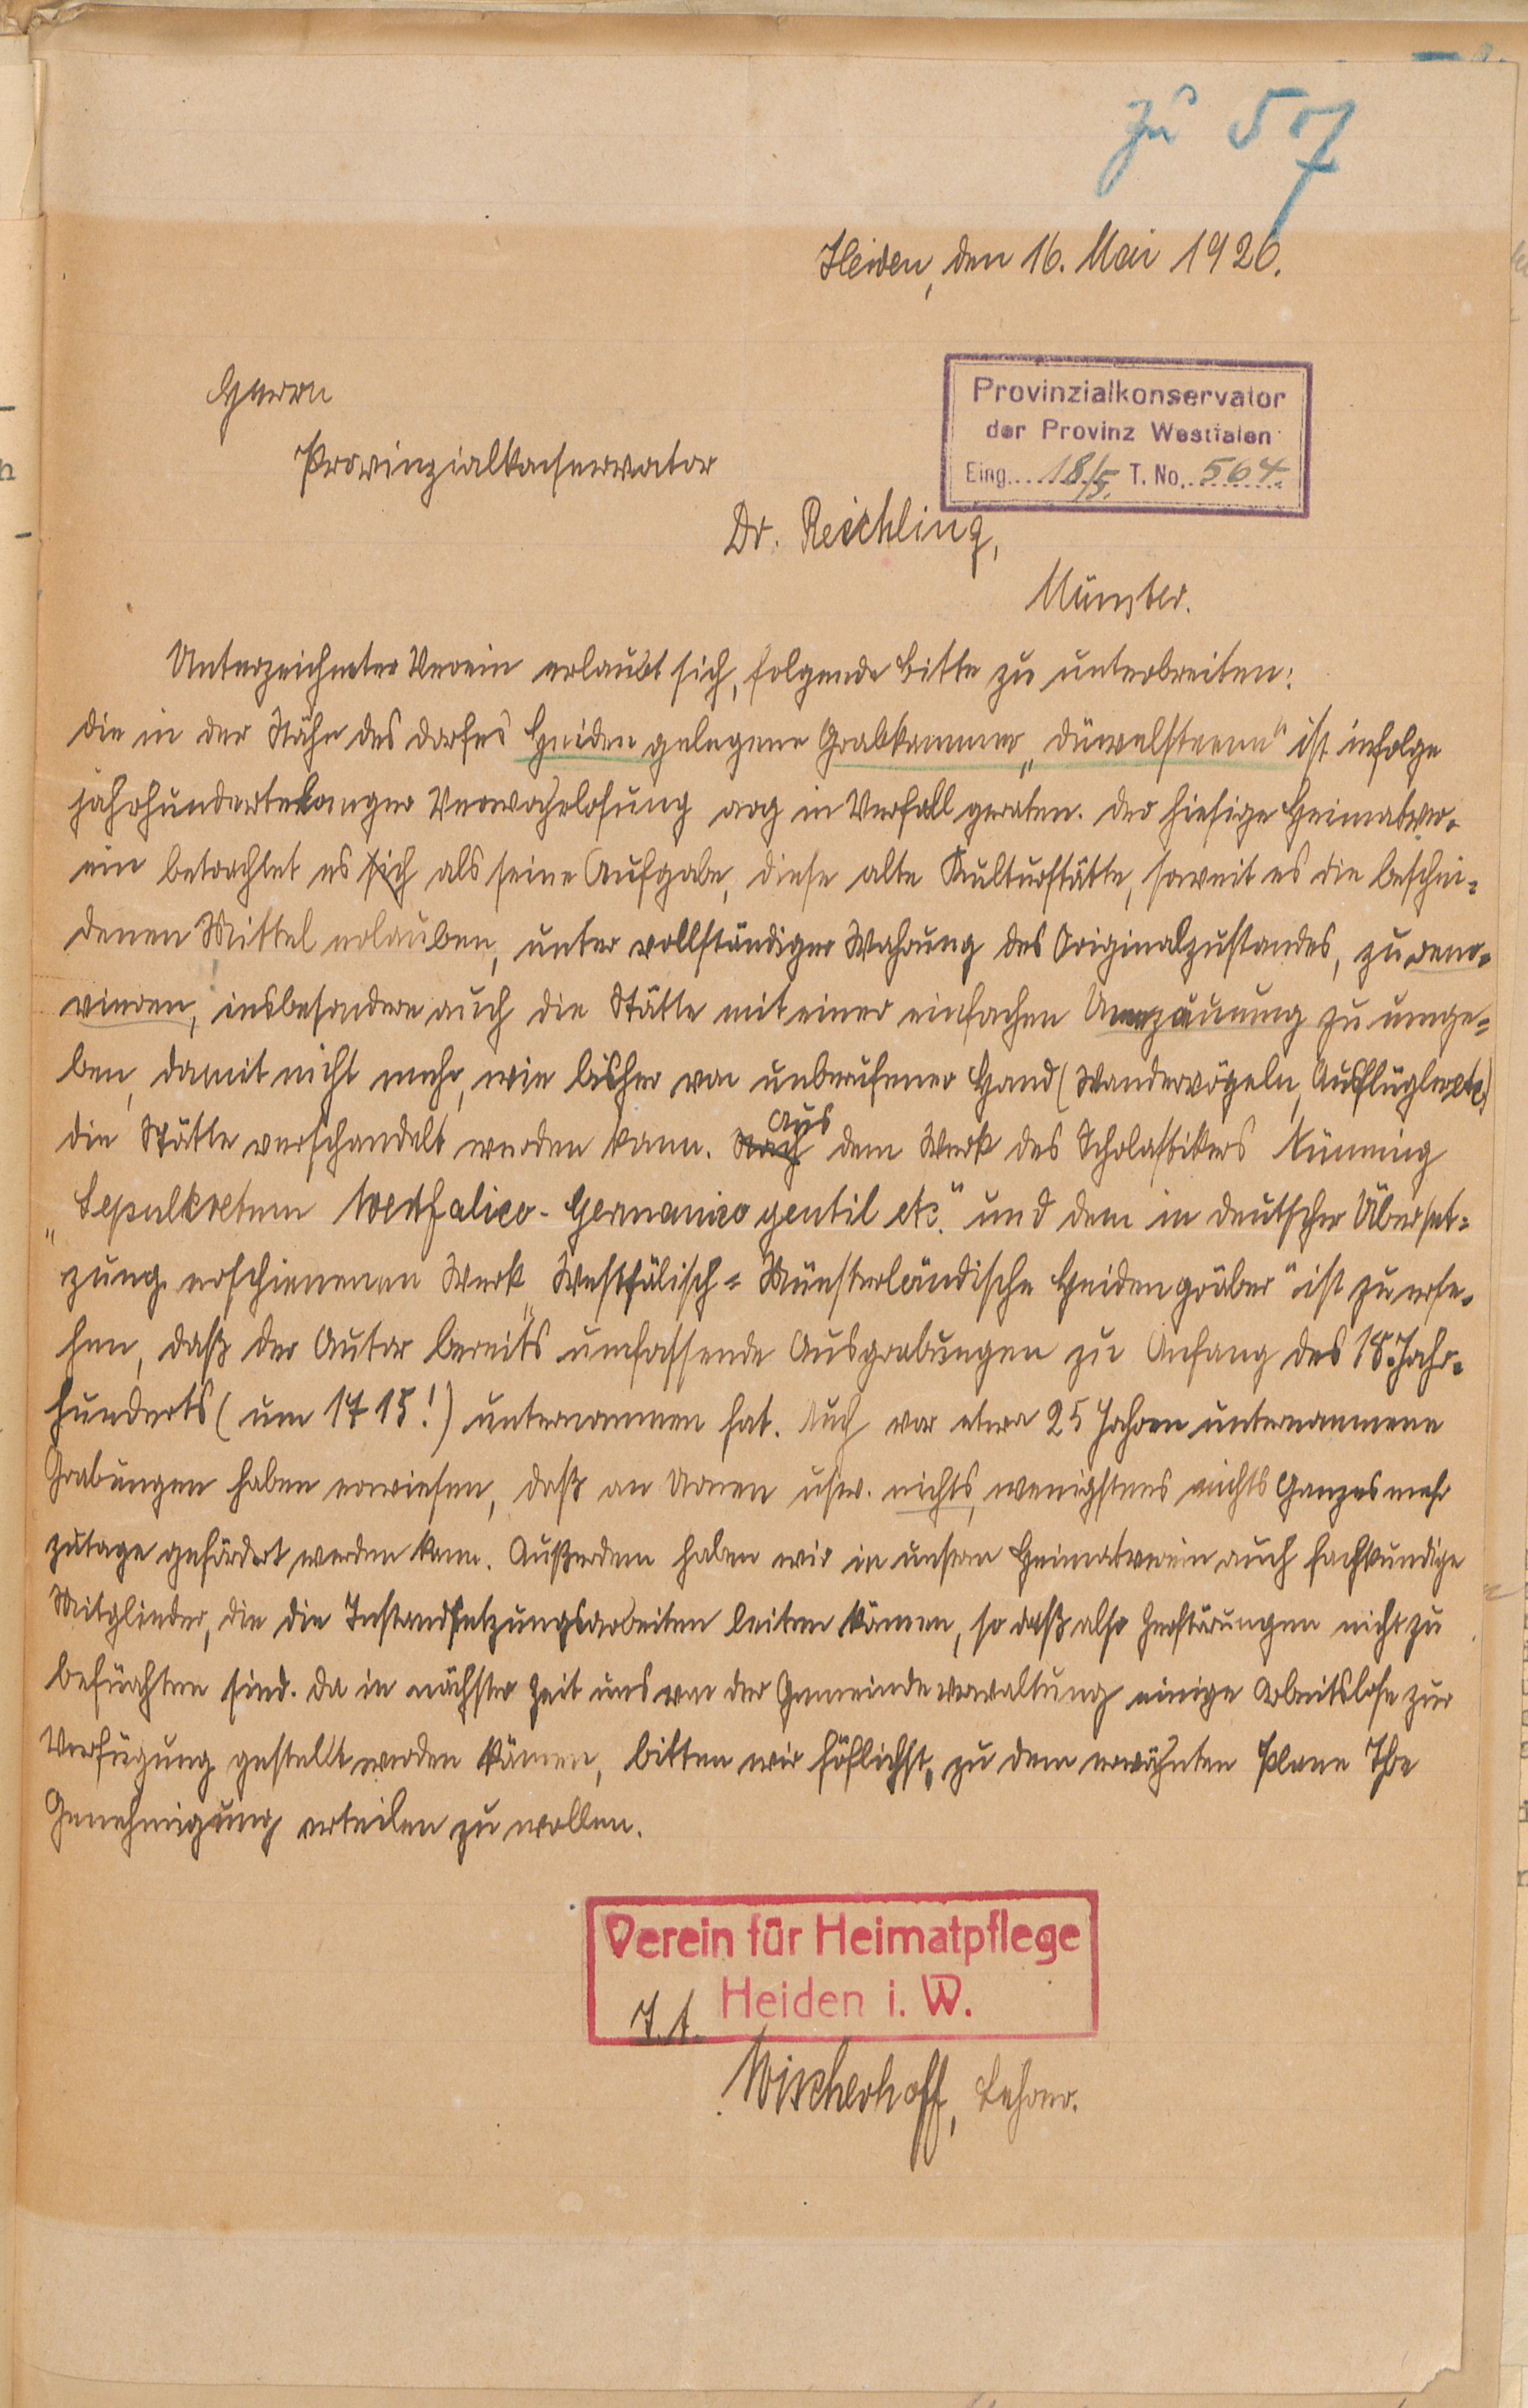 zu 57
Heiden, den 16. Mai 1926.
Herrn
Provinzialkonservator
Dr. Reichling,
Münster.
Provinzialkonservator
der Provinz Westfalen
Eing. 18/5. T. No. 564.
Unterzeichneter Verein erlaubt sich, folgende Bitte zu unterbreiten:
Die in der Nähe des Dorfes Heiden gelegene Grabkammer „Düwelsteene“ ist infolge
jahrhundertelanger Verwahrlosung arg in Verfall geraten. Der hiesige Heimatver-
ein betrachtet es sich als seine Aufgabe, diese alte Kulturstätte, soweit es die beschei-
denen Mittel erlauben, unter vollständiger Wahrung des Originalzustandes, zu reno-
vieren, insbesondere auch die Stätte mit einer einfachen Umzäunung zu umge-
ben, damit nicht mehr, wie bisher von unberufener Hand (Wandervögeln, Ausflügler etc.)
die Stätte verschandelt werden kann. Nach aus dem Werk des Scholastikers Nünning
„Sepulkretum Westfalico-Germanico gentil etc.“ und dem in deutscher Überset-
zung erschienenen Werk „Westfälisch-Münsterländische Heidengräber“ ist zu erse-
hen, daß der Autor bereits umfassende Ausgrabungen zu Anfang des 18. Jahr-
hunderts (um 1715!) unternommen hat. Auch vor etwa 25 Jahren unternommene
Grabungen haben erwiesen, daß an Urnen usw. nichts, wenigstens nichts Ganzes mehr
zutage gefördert werden kann. Außerdem haben wir in unserm Heimatverein auch fachkundige
Mitglieder, die die Instandsetzungsarbeiten leiten können, so daß also Zerstörungen nicht zu
befürchten sind. Da in nächster Zeit uns von der Gemeindeverwaltung einige Arbeitslose zur
Verfügung gestellt werden können, bitten wir höflichst, zu dem erwähnten Plane Ihre
Genehmigung erteilen zu wollen.
Verein für Heimatpflege
Heiden i. W.
I. A.
Wischerhoff, Lehrer.